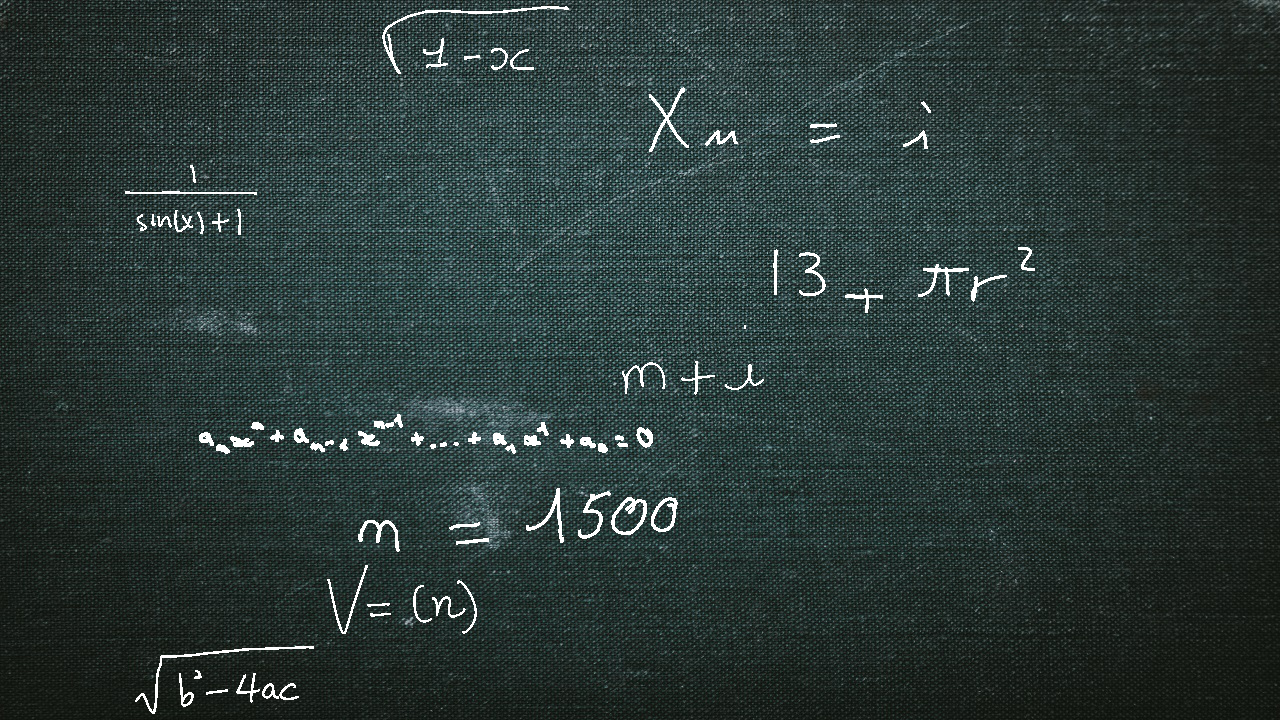 √(1-x)
Xn = i
1/(sin(x)+1)
13 + πr²
m+i
aₙxⁿ + aₙ₋₁xⁿ⁻¹ + ... + a₁x¹ + a₀ = 0
n = 1500
V = (n)
√(b²-4ac)